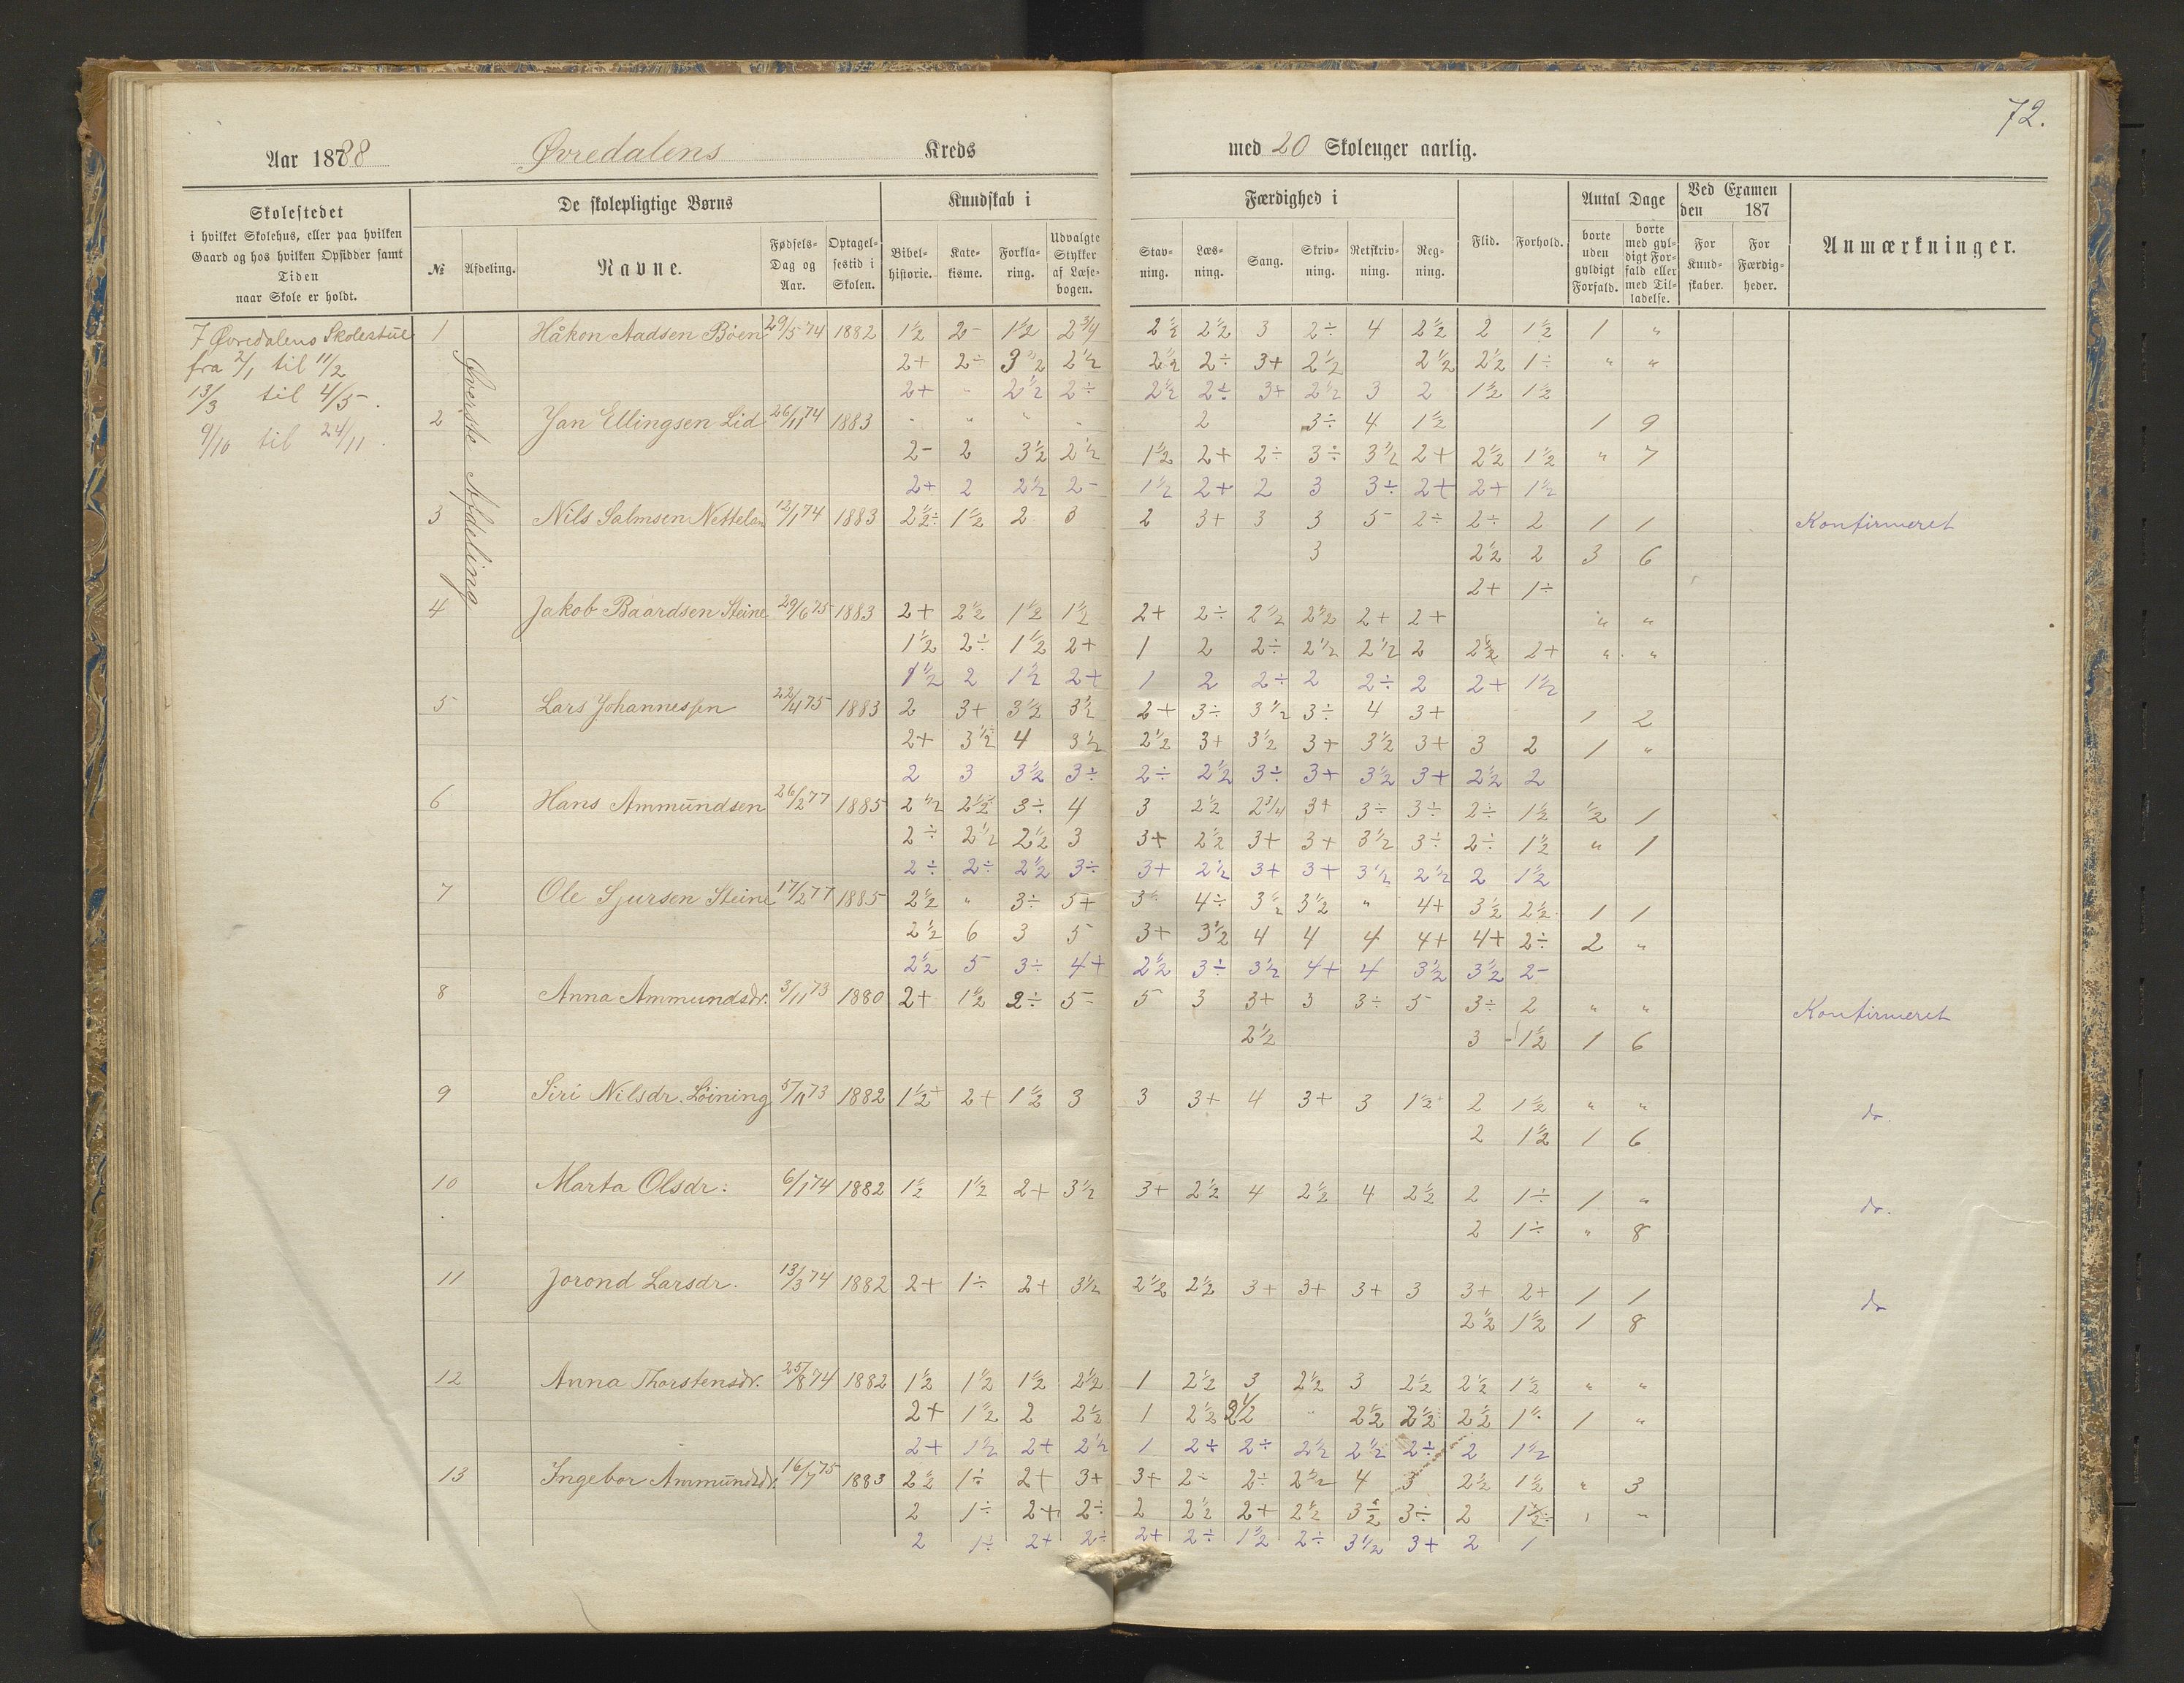 72.
Aar 1888 Øvredalens Kreds med 20 Skoleuger aarlig.
Skolestedet
i hvilket Skolehus, eller paa hvilken
Gaard og hos hvilken Opsidder samt
Tiden
naar Skole er holdt.
De skolepligtige Børns
№ Afdeling. Navne. Fødsels-Dag og Aar. Optagelsestid i Skolen.
Kundskab i
Bibelhistorie. Katekisme. Forklaring. Udvalgte Stykker af Læsebogen.
Færdighed i
Stavning. Læsning. Sang. Skrivning. Retskrivning. Regning.
Flid. Forhold.
Antal Dage
borte uden gyldigt Forfald. borte med gyldigt Forfald eller med Tilladelse.
Ved Examen den 187
For Kundskaber. For Færdigheder.
Anmærkninger.
I Øvredalens Skolestue
fra 2/1 til 11/2
13/3 til 4/5.
9/10 til 24/11.
Øverste Afdeling
1 Håkon Aadsen Böen 29/5 74 1882 1½ 2- 1½ 2¾ 2½ 2½ 3 2÷ 4 2½ 2 1½ 1 "
2+ 2÷ 3½ 2½ 2½ 2÷ 3+ 2½ 2½ 2½ 1÷ " "
2+ " 2½ 2÷ 2½ 2÷ 3+ 2½ 3 2 1½ 1½
2 Jan Ellingsen Lid 26/11 74 1883 " " " " 2 3÷ 4 1½ 1 9
2- 2 3½ 2½ 1½ 2+ 2÷ 3÷ 3½ 2+ 2½ 1½ " 7
2+ 2 2½ 2- 1½ 2+ 2 3 3÷ 2+ 2+ 1½
3 Nils Salmsen Nettelan 12/1 74 1883 2½÷ 1½ 2 3 2 3+ 3 3 5 2÷ 2÷ 2 1 1 Konfirmeret
3 2½ 2 3 6
2+ 1÷
4 Jakob Baardsen Steine 29/6 75 1883 2+ 2½ 1½ 1½ 2+ 2÷ 2½ 2½ 2+ 2+ " "
1½ 2÷ 1½ 2+ 1 2 2÷ 2½ 2½ 2 2½ 2+ " "
1½ 2 1½ 2+ 1 2 2÷ 2 2÷ 2 2+ 1½
5 Lars Johannessen 22/4 75 1883 2 3+ 3½ 3½ 2+ 3÷ 3½ 3÷ 4 3+ 1 2
2+ 3½ 4 3½ 2½ 3+ 3½ 3+ 3½ 3+ 3 2 1 "
2 3 3½ 3÷ 2÷ 2½ 3÷ 3+ 3½ 3+ 2½ 2
6 Hans Ammundsen 26/2 77 1885 2½ 2½ 3÷ 4 3 2½ 2¾ 3+ 3÷ 3÷ 2÷ 1½ ½ 1
2÷ 2½ 2½ 3 3+ 2½ 3+ 3+ 3½ 3÷ 2÷ 1½ " 1
2÷ 2÷ 2½ 3÷ 3+ 2½ 3+ 3+ 3½ 2½ 2 1½
7 Ole Sjursen Steine 17/2 77 1885 2½ " 3÷ 5+ 3÷ 4÷ 3½ 3½ " 4+ 3½ 2½ 1 1
2½ 6 3 5 3+ 3½ 4 4 4 4+ 4+ 2÷ 2 "
2½ 5 3÷ 4+ 2½ 3÷ 3½ 4+ 4 3½ 3½ 2-
8 Anna Ammundsdr. 3/11 73 1880 2+ 1½ 2÷ 5÷ 5 3 3+ 3 3÷ 5 3÷ 2 " " Konfirmeret
2½ 3 1½ 1 6
9 Siri Nilsdr. Löining 5/11 73 1882 1½+ 2+ 1½ 3 3 3+ 4 3+ 3 1½+ 2 1½ " " do.
2 1½ 1 6
10 Marta Olsdr: 6/1 74 1882 1½ 1½ 2+ 3½ 3+ 2½ 4 2½ 4 2½ 2 1÷ 1 " do.
2 1÷ " 8
11 Jorond Larsdr. 13/3 74 1882 2+ 1÷ 2+ 3½ 2½ 2½ 3+ 3+ 3+ 3 3+ 2+ 1 1 do
2½ 1½ 1 8
12 Anna Thorstensdr. 25/8 74 1882 1½ 1½ 1½ 2½ 1 2½ 3 2½ 3 2½ 2½ 1½ " "
2+ 1½ 2 2½ 1 2½ 2½ " 2½ 2½ 2½ 1÷ 1 "
2+ 1½ 2+ 2½ 1 2+ 2÷ 2½ 2½ 2÷ 2 1½
13 Ingebor Ammundsdr. 16/7 75 1883 2½ 1÷ 2+ 3+ 3+ 2÷ 2÷ 2½ 4 3 2½ 1½ " 3
2 1÷ 2+ 2÷ 2 2½ 2+ 2½ 3½ 3÷ 2 1½÷ " "
2 1÷ 2+ 2÷ 2+ 2÷ 1½ 2÷ 3½ 3+ 2 1